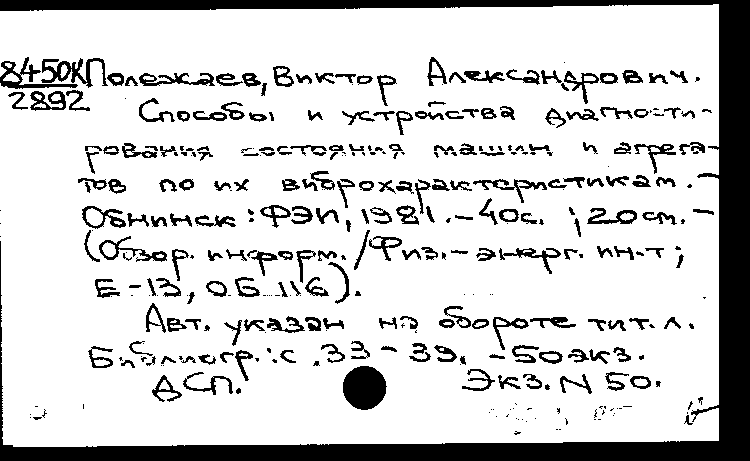 8450К Полежаев, Виктор Александрович.
2892
Способы и устройства диагности-
рования состояния машин и агрега-
тов по их виброхарактеристикам. –
Обнинск : ФЭИ, 1981. – 40с. ; 20 см. –
(Обзор. информ. / Физ.-энерг. ин-т ;
Е-13, ОБ 116).
Авт. указан на обороте тит. л.
Библиогр.: с. 33 – 39. – 50 экз.
ДСП. Экз. N 50.